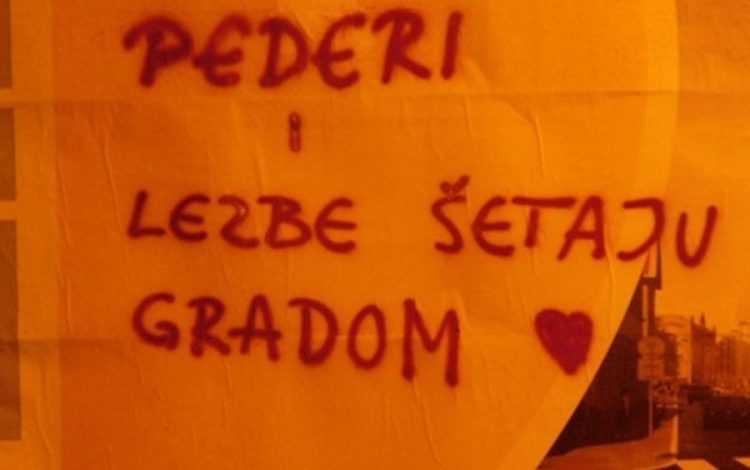 PEDERI
I
LEZBE ŠETAJU
GRADOM ♥